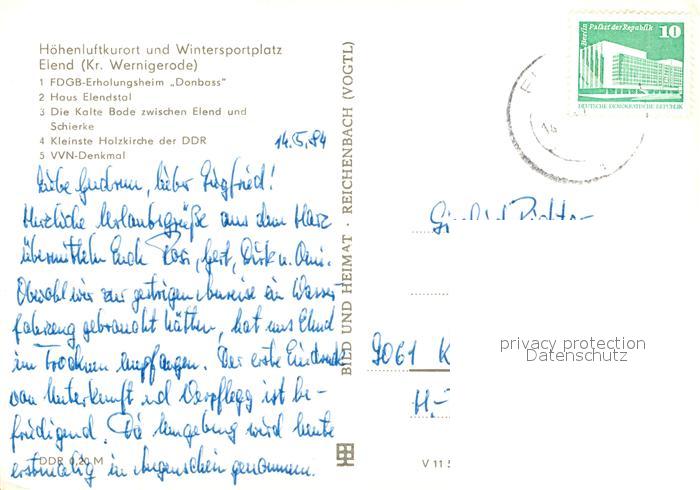 Höhenluftkurort und Wintersportplatz
Elend (Kr. Wernigerode)
1 FDGB-Erholungsheim „Donbass"
2 Haus Elendstal
3 Die Kalte Bode zwischen Elend und
Schierke
4 Kleinste Holzkirche der DDR
5 VVN-Denkmal
14.5.84
Liebe Gudrun, lieber Siegfried!
Herzliche Urlaubsgrüße aus dem Harz
übermitteln Euch Rosi, Gert, Dirk u. Omi.
Obwohl wir zur gestrigen Anreise ein Wasser
fahrzeug gebraucht hätten, hat uns Elend
im Trocknen empfangen. Der erste Eindruck
von Unterkunft und Verpflegg ist be-
friedigend. Die Umgebung wird heute
erstmalig in Augenschein genommen.
DDR 0,20 M
BILD UND HEIMAT · REICHENBACH (VOGTL)
Berlin Palast der Republik
10
DEUTSCHE DEMOKRATISCHE REPUBLIK
14
9061 K
H.-
privacy protection
Datenschutz
V 11 5